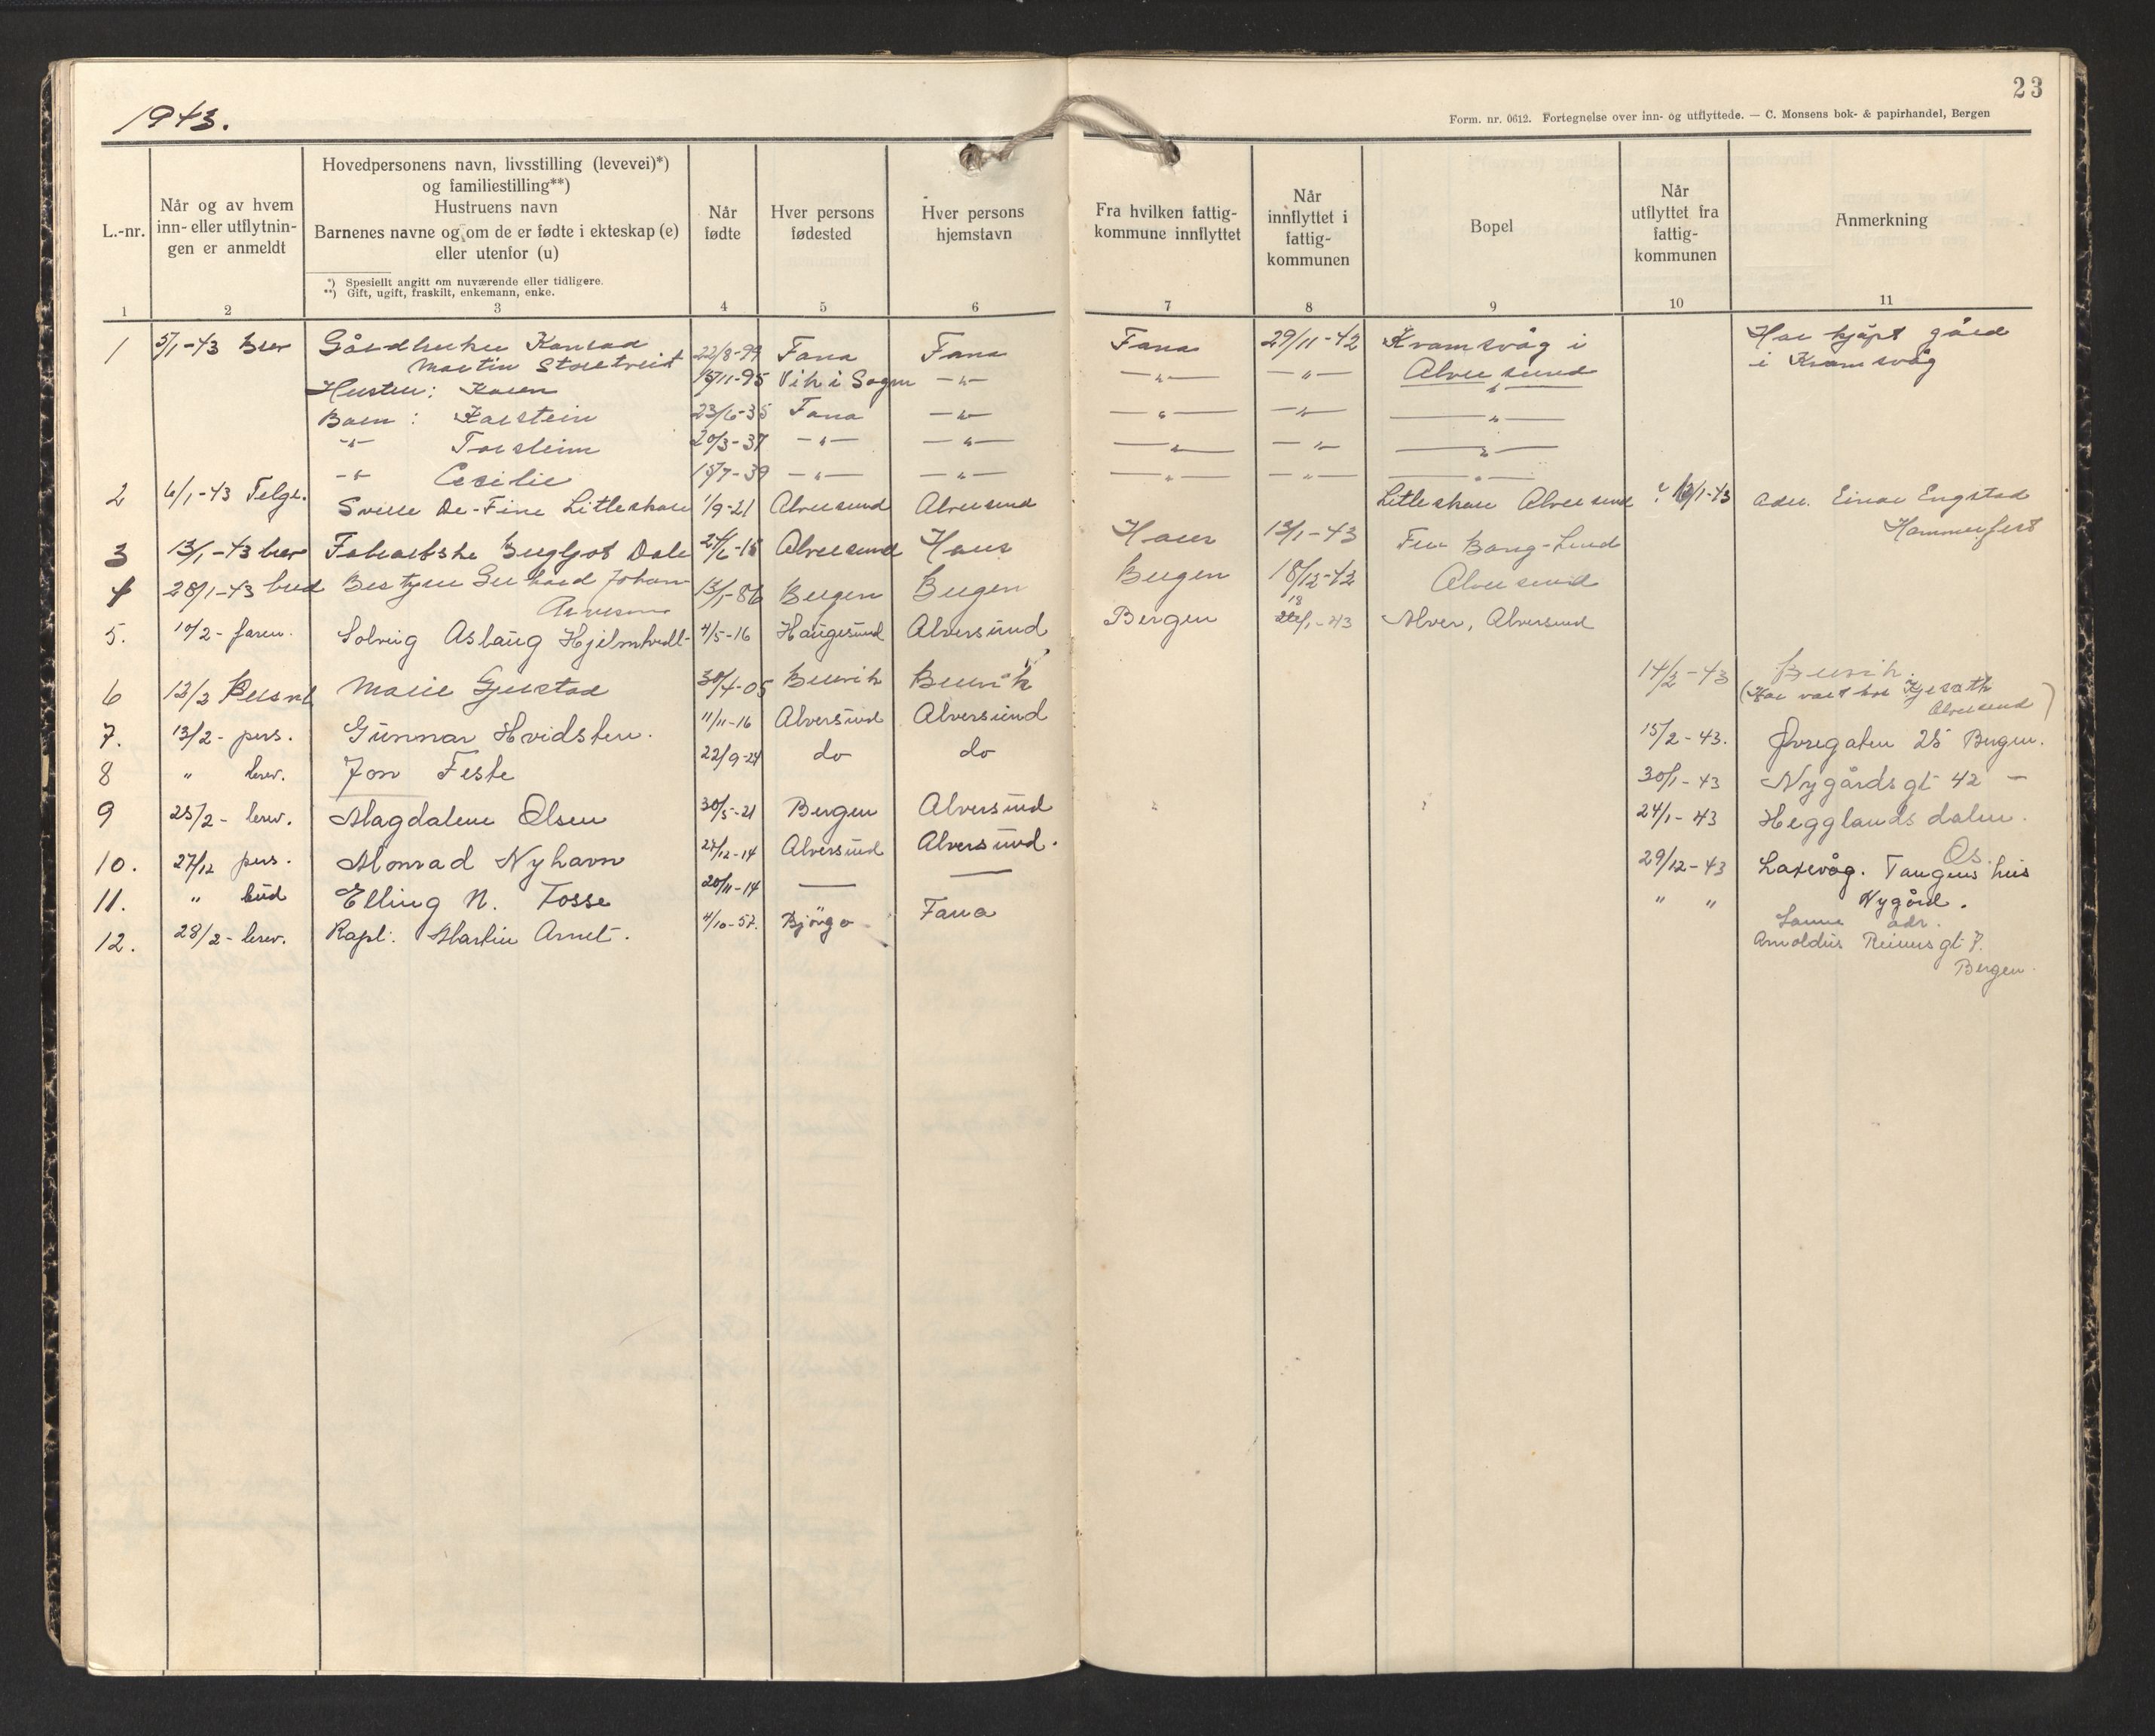 1943.
23
Form. nr. 0612. Fortegnelse over inn- og utflyttede. — C. Monsens bok- & papirhandel, Bergen
L.-nr.
Når og av hvem inn- eller utflytnin- gen er anmeldt
Hovedpersonens navn, livsstilling (levevei)*)
og familiestilling**)
Hustruens navn
Barnenes navne og om de er fødte i ekteskap (e)
eller utenfor (u)
*) Spesiellt angitt om nuværende eller tidligere.
**) Gift, ugift, fraskilt, enkemann, enke.
Når fødte
Hver persons fødested
Hver persons hjemstavn
Fra hvilken fattig- kommune innflyttet
Når innflyttet i fattig- kommunen
Bopel
Når utflyttet fra fattig- kommunen
Anmerkning
1 2 3 4 5 6 7 8 9 10 11
1 5/1-43 brev Gårdbruker Konrad 22/8-99 Fana Fana Fana 29/11-42 Kramsvåg i Har kjøpt gård
Martin Storetveit Alversund i Kramsvåg
Hustru: Karen 15/11-95 Vik i Sogn —"— —"— —"— —"—
Barn: Karstein 23/6-35 Fana —"— —"— —"— —"—
—"— Torstein 20/3-37 —"— —"— —"— —"— —"—
—"— Cecilie 15/7-39 —"— —"— —"— —"— —"—
2 6/1-43 Telgr. Sverre De-Fine Litleskare 1/9-21 Alversund Alversund Litleskare Alversund 12/1-43 adr. Einar Engstad
Hammerfest
3 13/1-43 brev Fabrikbske Bergljot Dale Alversund Haus Haus 13/1-43 Fru Bang-Lund
4 28/1-43 bud Bestyrer Gerhard Johan 13/1-86 Bergen Bergen Bergen 18/12-42 Alversund
Arnesen
5. 10/2- faren. Solveig Aslaug Hjelmtvedt 4/5-16 Haugesund Alversund Bergen 18/1-43 Alver, Alversund
6 12/2 Marie Gjerstad 30/4-05 Bruvik Bruvik 14/2-43 Bruvik.
(Har vært hos Kjersath
Alversund)
7. 13/2- pers. Gunnar Hvidsten. 11/11-16 Alversund Alversund 15/2-43. Øvregaten 25 Bergen.
8 " brev. Jon Feste 22/9-24 do do 30/1-43 Nygårdsgt 42 —
9 25/2- brev. Magdalene Olsen 30/5-21 Bergen Alversund 24/1-43 Hegglandsdalen.
Os.
10. 27/12 pers. Monrad Nyhavn 27/12-14 Alversund Alversund. 29/12-43 Laxevåg. Tangens hus
Nygård.
11. " bud Elling N. Fosse 20/11-14 — — " " Samme adr.
12. 28/2- brev. Kapt. Martin Arnet. 4/10-57. Bjørgo Fana Arnoldus Reimersgt 7.
Bergen.